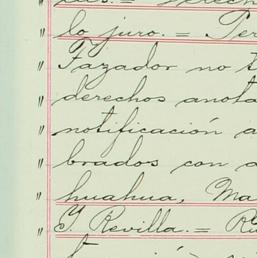 lo juro. = Per
" Fazador no t
" derechos anota
" notificación a
" brados con a
" huahua, Ma
" G. Revilla. = Ru